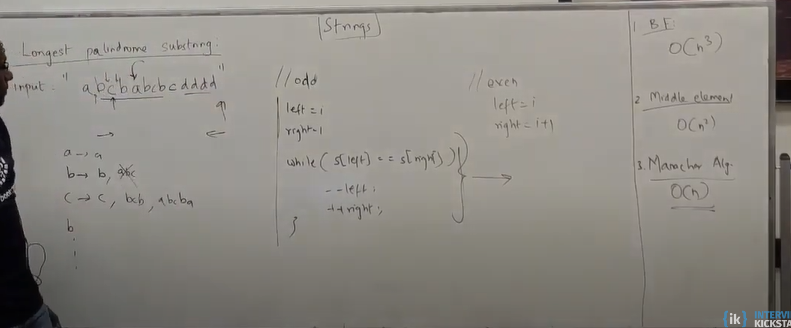 |Strings|
Longest palindrome substring:
input: "abcbabcbcdddd"
a → a
b → b, abc
c → c, bcb, abcba
b
//odd
left = i
right = i
while( s[left] == s[right] ) {
--left;
++right;
}
//even
left = i
right = i+1
1. B.F
O(n³)
2. Middle element
O(n²)
3. Manacher Alg.
O(n)
{ik} INTERVI
KICKSTA